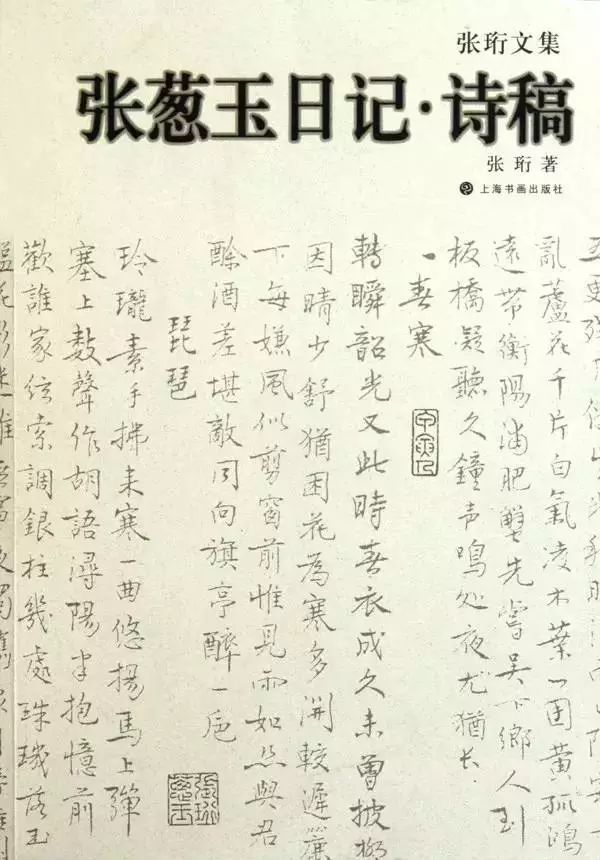 张珩文集
张葱玉日记·诗稿
张珩著
上海书画出版社
亂蘆花千片白氣凌木葉一園黃孤鴻
遠帶衡陽浦肥蟹先嘗吳下鄉人到
板橋凝聽久鐘声鳴处夜尤猶长
春寒
轉瞬韶光又此時春衣成久未曾披柳
因晴少舒猶困花為寒多開較遲簾
下每嫌風似剪窗前惟見雨如丝與君
酴酒差堪敵同向旗亭醉一卮
琵琶
玲瓏素手拂来寒一曲悠揚馬上彈
塞上數聲作胡語潯陽半抱憶前
歡誰家弦索調銀柱幾處珠璣落玉
張珩
蔥玉